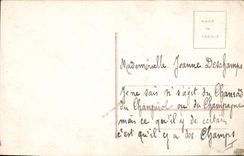 MADE
IN
FRANCE
Mademoiselle Jeanne Deschamps
Je ne sais s'il s'agit du
du ou du Champagne
mais ce qu'il y de certain
c'est qu'il y a des Champs